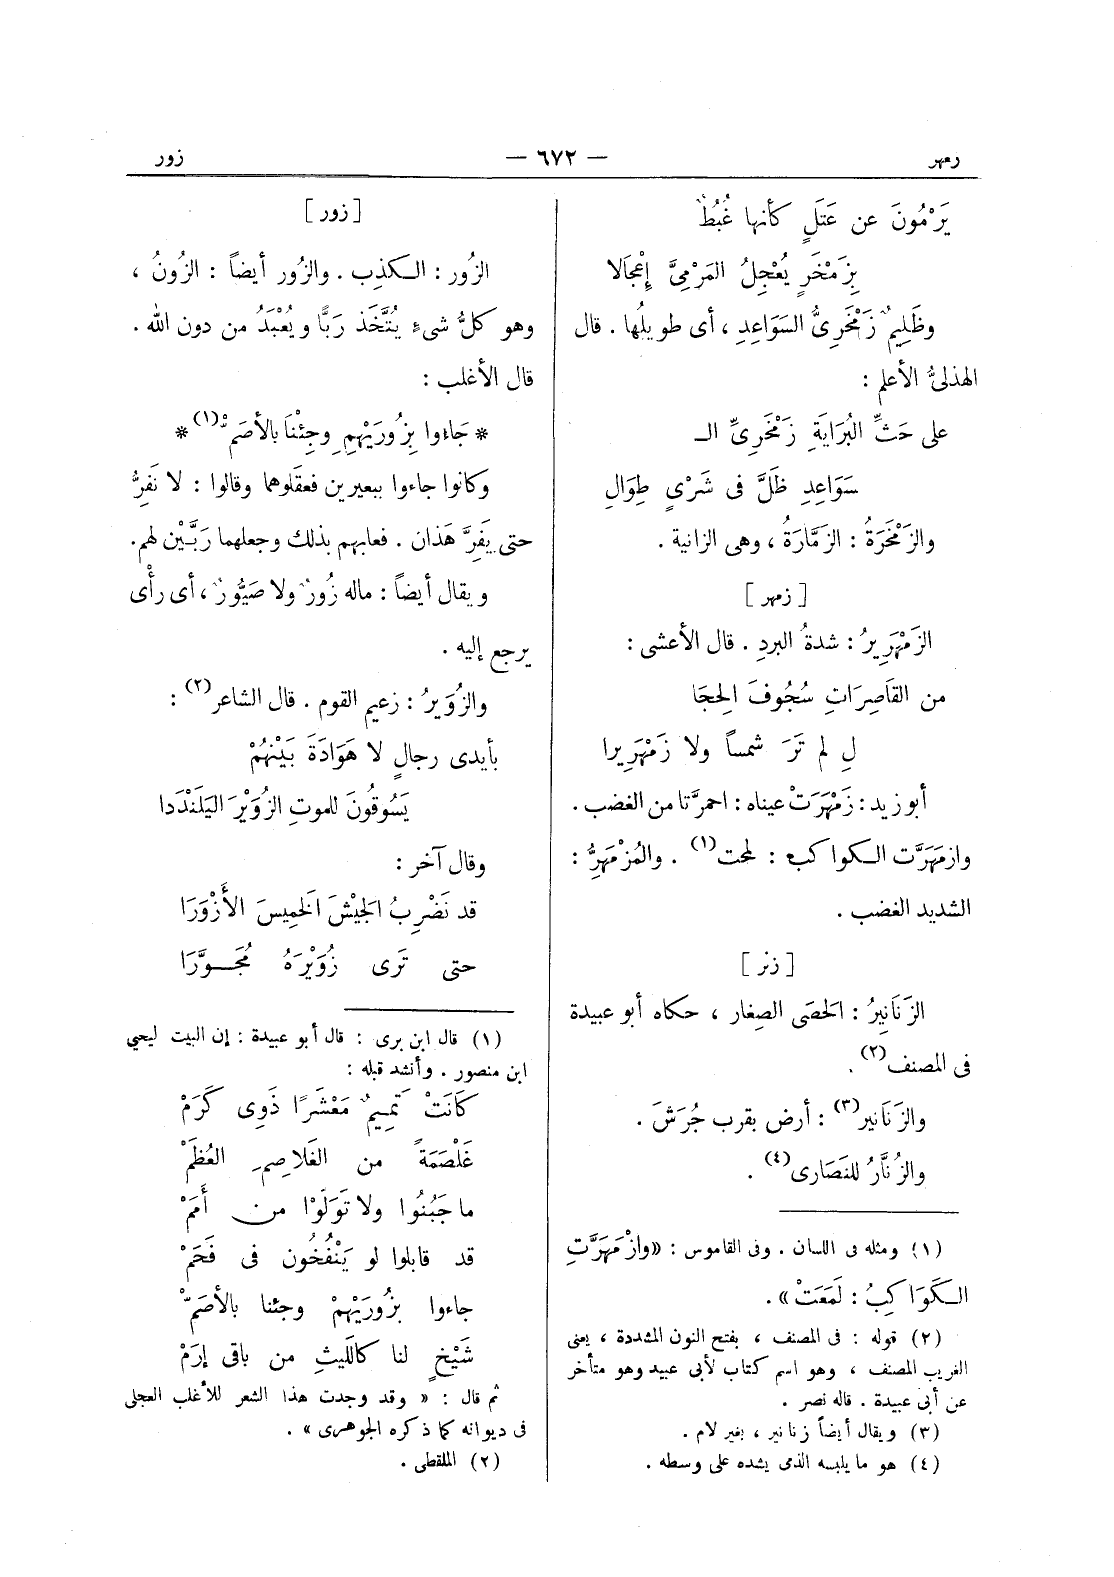 زمهر — ٦٧٢ — زور
يَرْمُونَ عن عَتَلٍ كأنها غُبُطٌ
بِزَمْخَرٍ يُعْجِلُ المَرْمِىَّ إعْجَالا
وظَلِيمٌ زَمْخَرِىُّ السَوَاعِدِ ، أى طويلُها . قال
الهذلىُّ الأعلم :
على حَتِّ البُرَايَةِ زَمْخَرِىِّ الـ
سَوَاعِدِ ظَلَّ فى شَرْىٍ طِوَالِ
والزَمْخَرَةُ : الزَمَّارَةُ ، وهى الزانية .
[ زمهر ]
الزَمْهَرِيرُ : شدةُ البردِ . قال الأعشى :
من القَاصِرَاتِ سُجُوفَ الحِجَا
لِ لم تَرَ شمساً ولا زَمْهَرِيرا
أبو زيد : زَمْهَرَتْ عيناه : احمرَّتا من الغضب .
وازمَهَرَّت الكواكب : لمحت(١) . والمُزْمَهِرُّ :
الشديد الغضب .
[ زنر ]
الزَنَانِيرُ : الحصَى الصِغار ، حكاه أبو عبيدة
فى المصنف(٢) .
والزَنَانير(٣) : أرض بقرب جُرَشَ .
والزُنَّارُ للنَصَارى(٤) .
(١) ومثله فى اللسان . وفى القاموس : «وازْمَهَرَّتِ
الكَوَاكِبُ : لَمَعَتْ» .
(٢) قوله : فى المصنف ، بفتح النون المشددة ، يعنى
الغريب المصنف ، وهو اسم كتاب لأبى عبيد وهو متأخر
عن أبى عبيدة . قاله نصر .
(٣) ويقال أيضاً زنانير ، بغير لام .
(٤) هو ما يلبسه الذمى يشده على وسطه .
[ زور ]
الزُور : الكذِب . والزُور أيضاً : الزُونُ ،
وهو كلُّ شىءٍ يُتَّخَذ رَبًّا ويُعْبَدُ من دون الله .
قال الأغلب :
* جَاءوا بِزُورَيْهِمِ وجِئْنَا بالأصَمْ(١) *
وكانوا جاءوا ببعيرين فعقَلوهما وقالوا : لا نَفِرُّ
حتى يَفِرَّ هَذان . فعابهم بذلك وجعلهما رَبَّيْن لهم.
ويقال أيضاً : ماله زُورٌ ولا صَيُّورٌ ، أى رأْى
يرجع إليه .
والزُوَيرُ : زعيم القوم . قال الشاعر(٢) :
بأيدى رجالٍ لا هَوَادَةَ بَيْنَهُمْ
يَسُوقُونَ للموتِ الزُوَيْرَ اليَلَنْدَدا
وقال آخر :
قد نَضْرِبُ الجَيْشَ الخَمِيسَ الأَزْوَرَا
حتى تَرى زُوَيْرَهُ مُجَــوَّرَا
(١) قال ابن برى : قال أبو عبيدة : إن البيت ليحيي
ابن منصور . وأنشد قبله :
كَانَتْ تَمِيمٌ مَعْشَرًا ذَوِى كَرَمْ
غَلْصَمَةً من الغَلاصِمِ العُظَمْ
ما جَبُنُوا ولا تَوَلَوْا من أَمَمْ
قد قابلوا لو يَنْفُخُون فى فَحَمْ
جاءوا بزُورَيْهِمْ وجئنا بالأصَمّْ
شَيْخٍ لنا كالليثِ من باقى إرَمْ
ثم قال : « وقد وجدت هذا الشعر للأغلب العجلى
فى ديوانه كما ذكره الجوهرى » .
(٢) الملقطى .